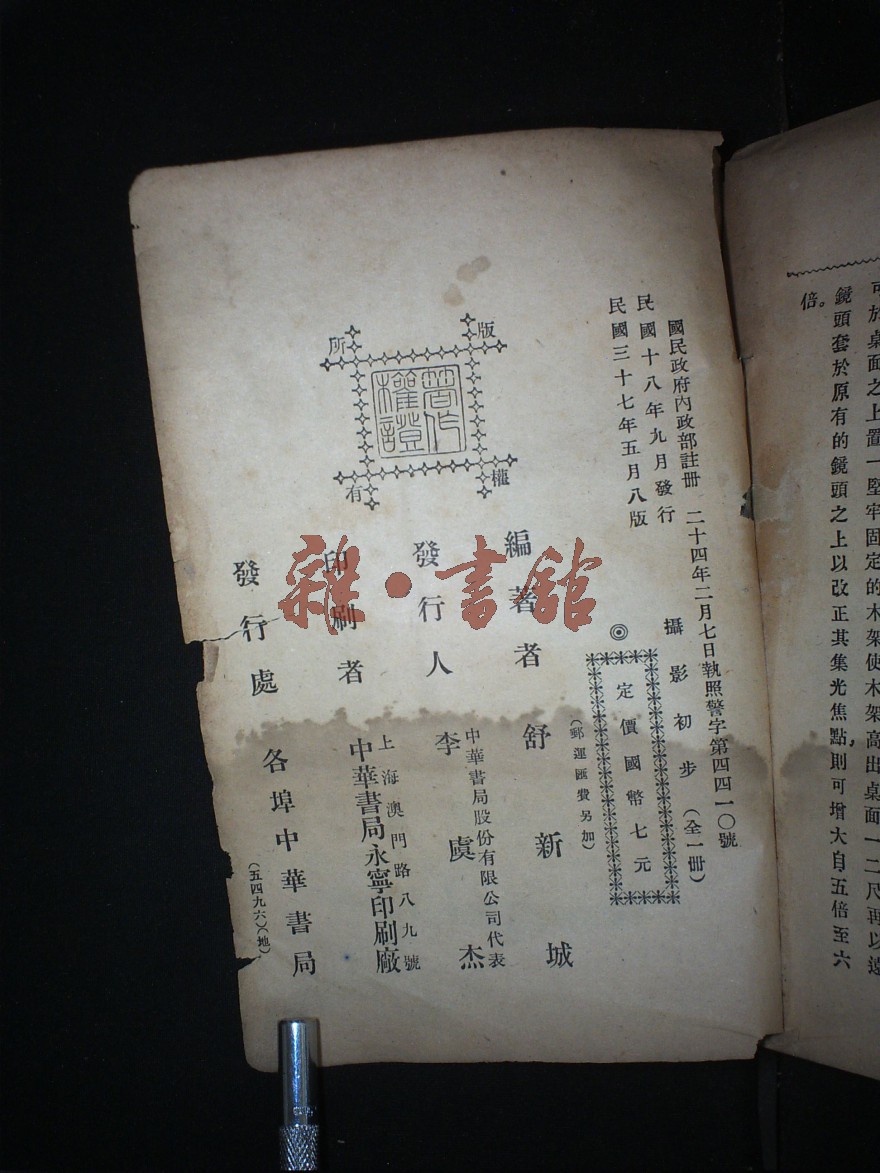 國民政府內政部註冊　二十四年二月七日執照警字第四四一〇號
民國十八年九月發行
民國三十七年五月八版
攝影初步（全一冊）
◎
定價國幣七元
（郵運匯費另加）
編著者　舒新城
發行人　中華書局股份有限公司代表
李虞杰
印刷者　上海澳門路八九號
中華書局永寧印刷廠
發行處　各埠中華書局
（五四九六）（地）
版權所有
著作權證
雜·書館
可於桌面之上置一堅牢固定的木架使木架高出桌面一二尺再以遠
鏡頭套於原有的鏡頭之上以改正其集光焦點，則可增大自五倍至六
倍。